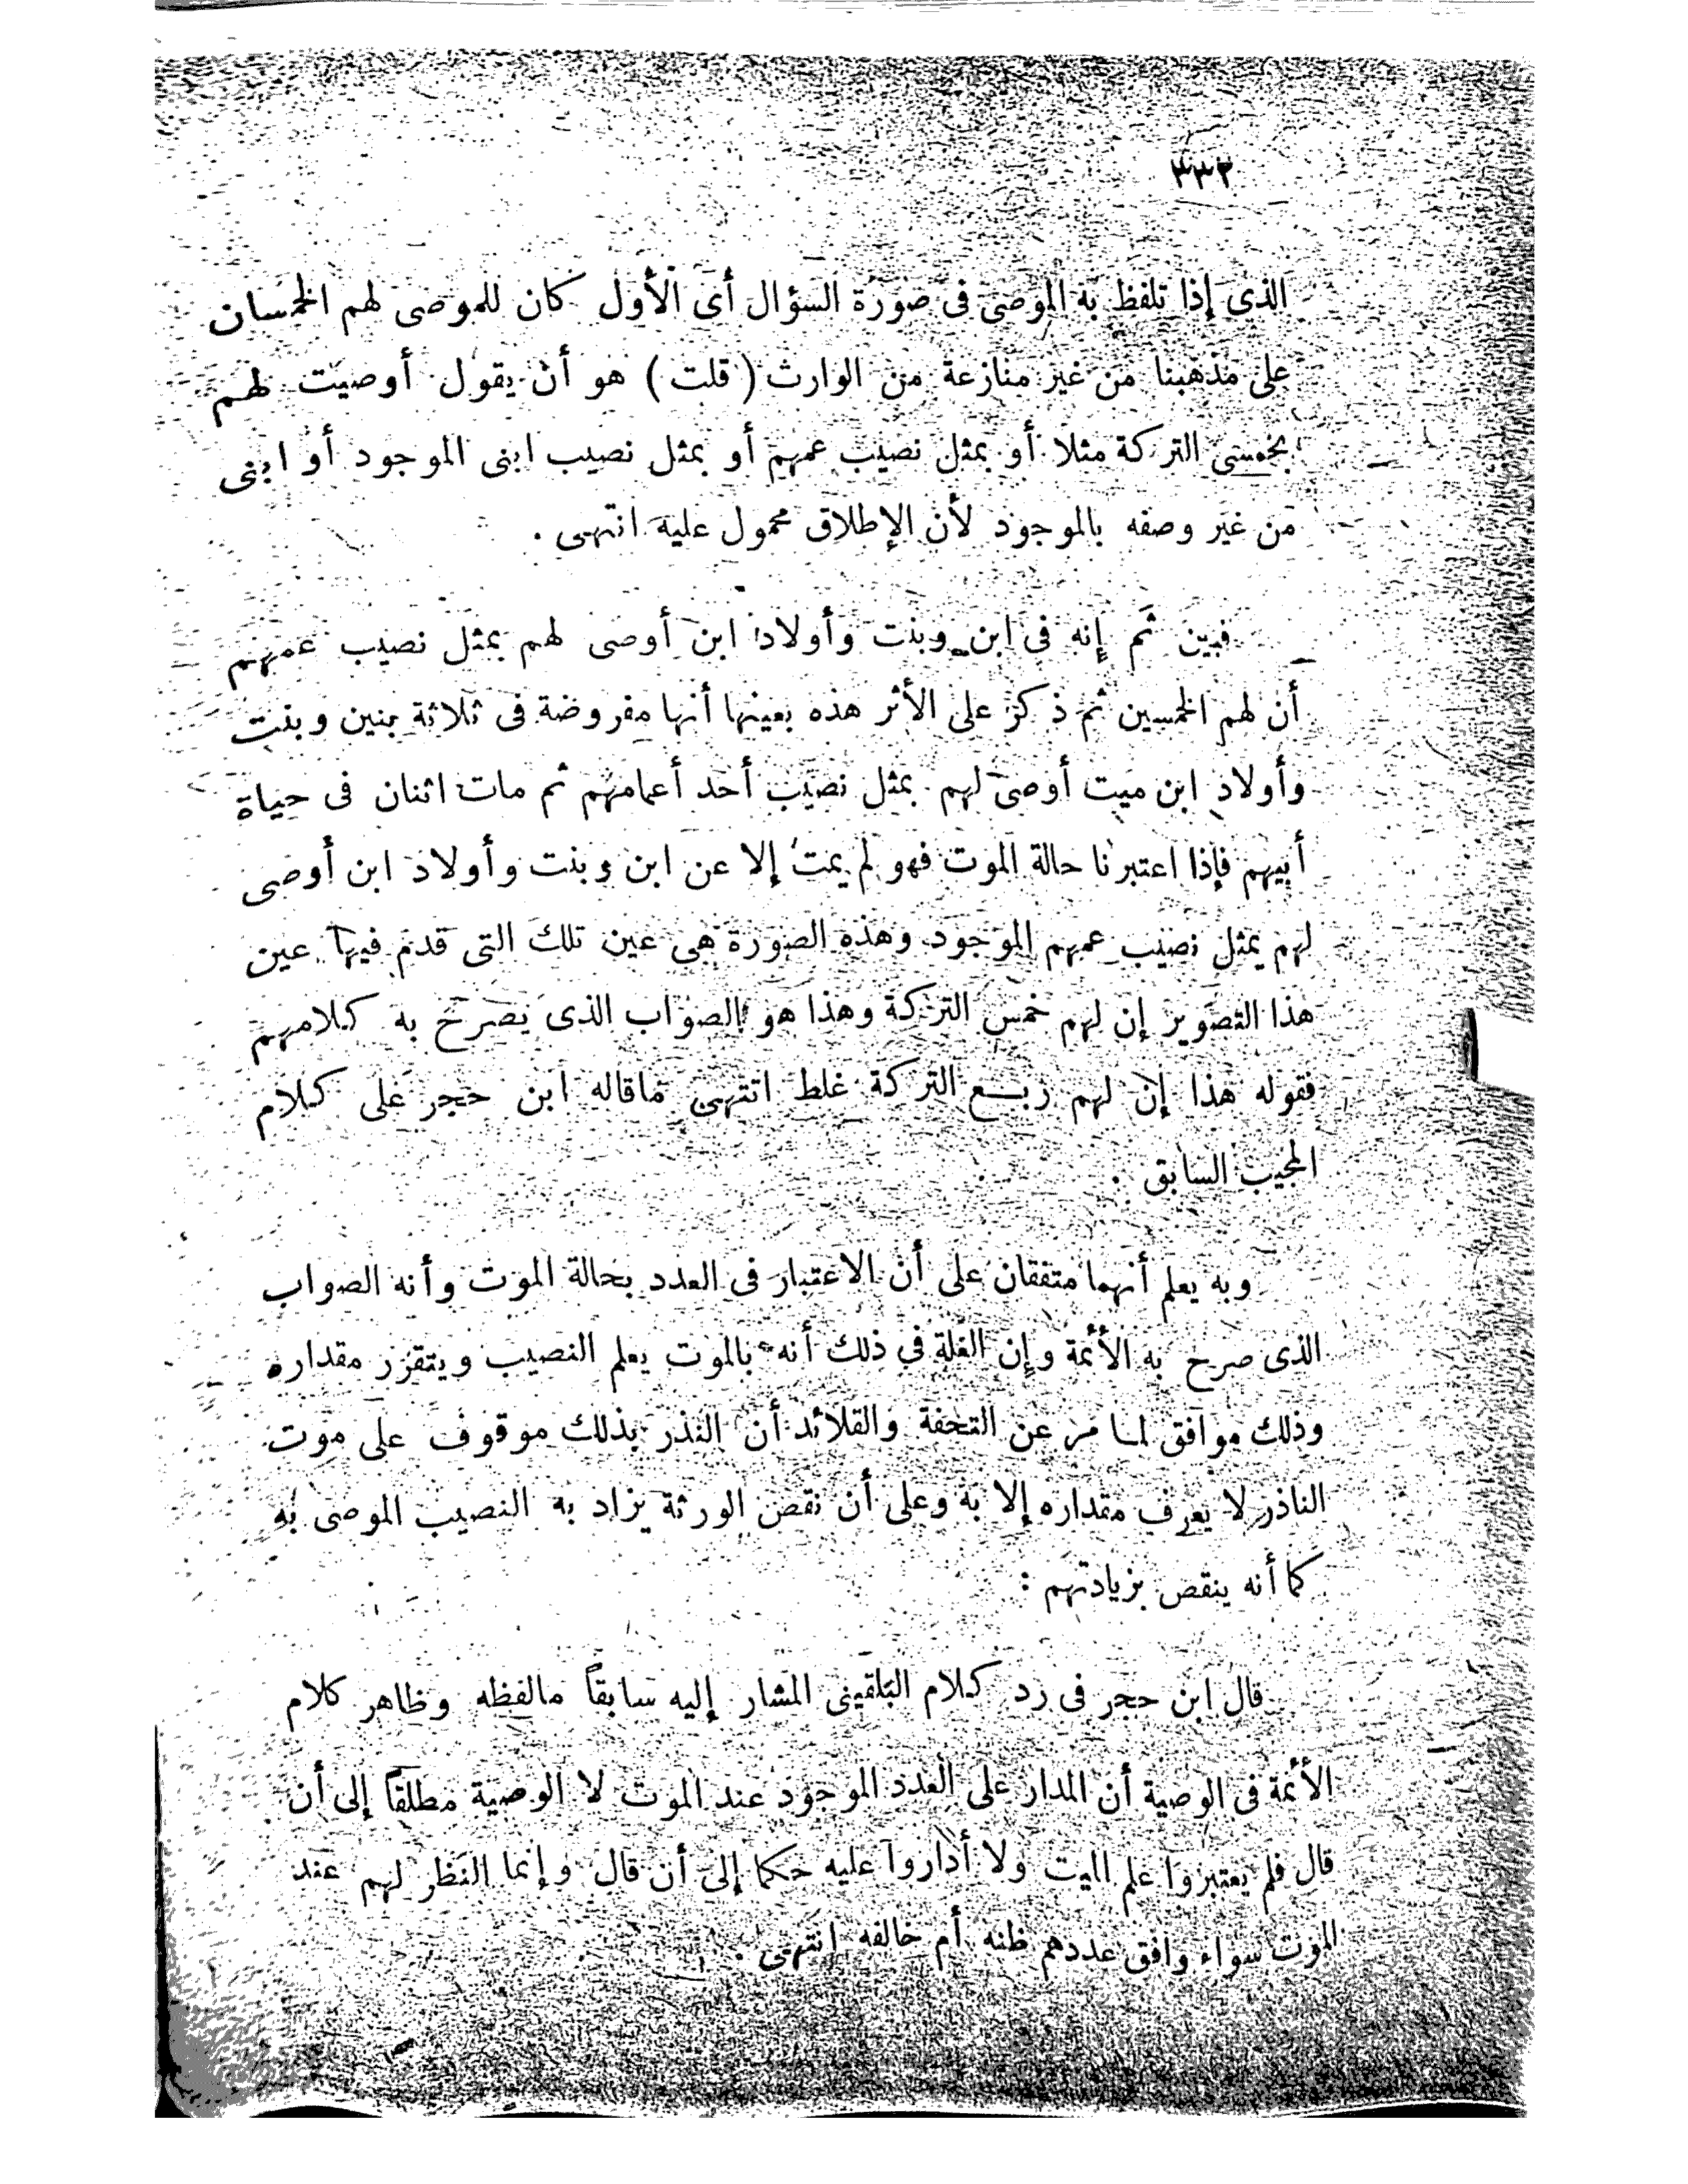 ٣٣٢
الذى إذا تلفظ به الموصى فى صورة السؤال أى الأول كان للموصى لهم الخمسان
على مذهبنا من غير منازعة من الوارث ( قلت ) هو أن يقول أوصيت لهم
بخمسى التركة مثلا أو بمثل نصيب عمهم أو بمثل نصيب ابنى الموجود أو ابنى
من غير وصفه بالموجود لأن الإطلاق محمول عليه انتهى .
فبين ثم إنه فى ابن وبنت وأولاد ابن أوصى لهم بمثل نصيب عمهم
أن لهم الخمسين ثم ذكر على الأثر هذه بعينها أنها مفروضة فى ثلاثة بنين وبنت
وأولاد ابن ميت أوصى لهم بمثل نصيب أحد أعمامهم ثم مات اثنان فى حياة
أبيهم فإذا اعتبرنا حالة الموت فهو لم يمت إلا عن ابن وبنت وأولاد ابن أوصى
لهم بمثل نصيب عمهم الموجود وهذه الصورة هى عين تلك التى قدم فيها عين
هذا التصوير إن لهم خمس التركة وهذا هو الصواب الذى يصرح به كلامهم
فقوله هذا إن لهم ربع التركة غلط انتهى ماقاله ابن حجر على كلام
المجيب السابق .
وبه يعلم أنهما متفقان على أن الاعتبار فى العدد بحالة الموت وأنه الصواب
الذى صرح به الأئمة وإن الغلة في ذلك أنه بالموت يعلم النصيب ويتقرر مقداره
وذلك موافق لما مر عن التحفة والقلائد أن النذر بذلك موقوف على موت
الناذر لا يعرف مقداره إلا به وعلى أن نقص الورثة يزاد به النصيب الموصى به
كما أنه ينقص بزيادتهم :
قال ابن حجر فى رد كلام البلقينى المشار إليه سابقاً مالفظه وظاهر كلام
الأئمة فى الوصية أن المدار على العدد الموجود عند الموت لا الوصية مطلقاً إلى أن
قال فلم يعتبروا علم الميت ولا أداروا عليه حكما إلى أن قال وإنما النظر لهم عند
الموت سواء وافق عددهم ظنه أم خالفه انتهى .